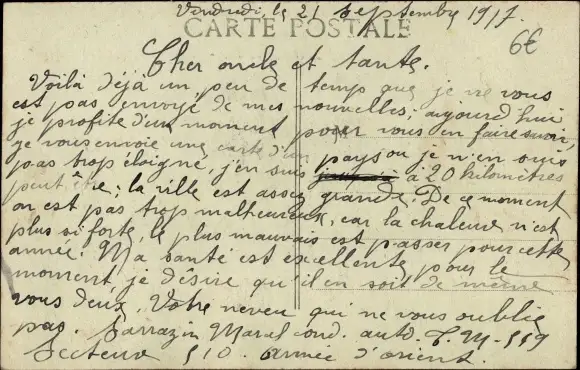 Vendredi, le 21 Septembre 1917.
CARTE POSTALE
6€
Cher oncle et tante.
Voilà déjà un peu de temps que je ne vous
est pas envoyé de mes nouvelles; aujourd'hui
je profite d'un moment pour vous en faire savoir,
je vous envoie une carte d'un pays ou je n'en suis
pas trop éloigné, j'en suis à 20 kilomètres
peut être; la ville est assez grande. De ce moment
on est pas trop malheureux, car la chaleur n'est
plus si forte, le plus mauvais est passer pour cette
année. Ma santé est excellente pour le
moment, je désire qu'il en soit de même
vous deux. Votre neveu qui ne vous oublie
pas. Sarrazin Maral cond. auto. T.M-519
Secteur 510. armée d'orient.